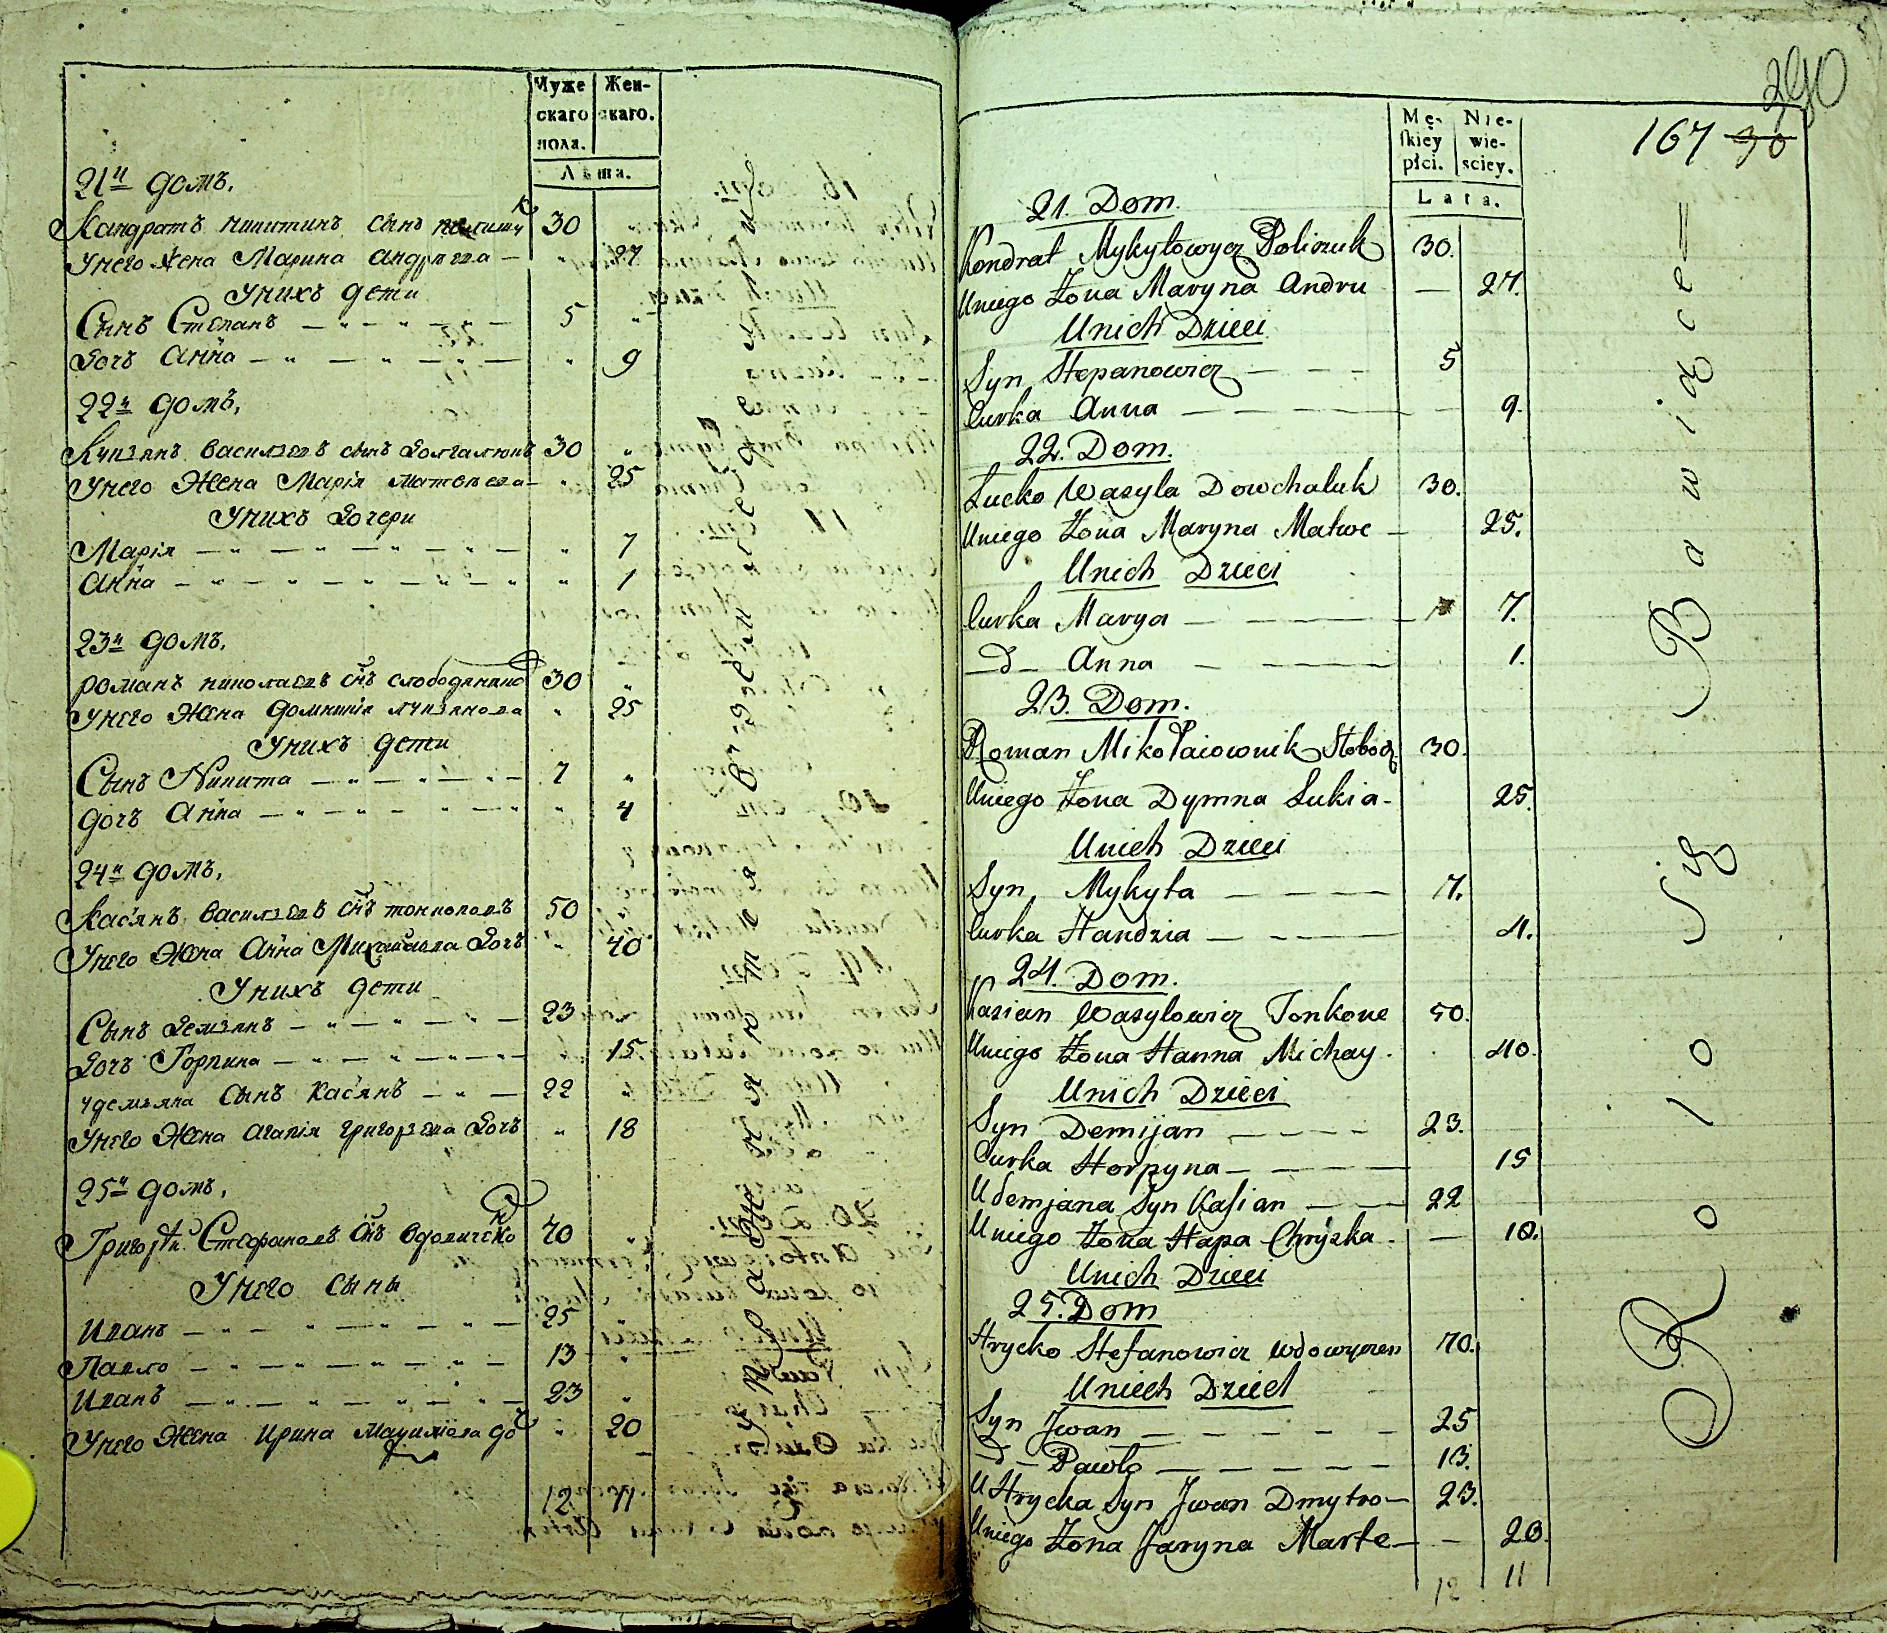 Муже
скаго
пола.
Жен-
скаго.
Лѣта.
21й домъ.
Кандратъ никитинъ сынъ полищук 30
Унего жена Марина андреева — 27
Унихъ дети
Сынъ Степанъ — 5
Дочъ Анна — 9
22й домъ.
Лукіянъ василіевъ сынъ Долгалюкъ 30
Унего Жена Марія матвеева — 25
Унихъ Дочери
Марія — 7
Анна — 1
23й домъ.
романъ николаевъ снъ слободянико 30
Унего Жена домникія лукіянова 25
Унихъ дети
Сынъ Никита — 7
дочъ Анна — 4
24й домъ.
Касіянъ василіевъ снъ тонкопоевъ 50
Унего Жена Анна Михайлова Дочъ 40
Унихъ дети
Сынъ Демянъ — 23
Дочъ Горпина — 15
удемяна Сынъ Касіянъ — 22
Унего Жена агапія григоріева Дочъ 18
25й домъ.
Григорій Стефановъ снъ вдовиченко 70
Унего сыны
Иванъ — 25
Павло — 13
Иванъ — 23
Унего Жена ирина доч 20
12 11
290
167 90
Mę-
skiey
płci.
Nie-
wie-
sciey.
Lata.
21. Dom.
Kondrat Mykytowycz Poliszuk 30.
Uniego Żona Maryna Andru — 27.
Unich Dzieci
Syn Stepanowicz — 5
Curka Anna — 9.
22. Dom.
Łucko Wasyla Dowhaluk 30.
Uniego Żona Maryna Matwe — 25.
Unich Dzieci
Curka Marya — 7.
—d— Anna — 1.
23. Dom.
Roman Mikołaiownik Słobod 30.
Uniego Żona Dymna Lukia- 25.
Unich Dzieci
Syn Mykyta — 7.
Curka Handzia — 4.
24. Dom.
Kasian Wasylowicz Tonkone 50.
Uniego Żona Hanna Michay. 40.
Unich Dzieci
Syn Demijan — 23.
Curka Horpyna — 15
Udemjana Syn Kasian — 22
Uniego Żona Hapa Chryszka — 18.
Unich Dzieci
25. Dom
Hrycko Stefanowicz Wdowyczen 70.
Unich Dzieci
Syn Jwan — 25
—d— Pawło — 13.
U Hrycka Syn Jwan Dmytro — 23.
Uniego Żona Jaryna Marte — 20.
12 11